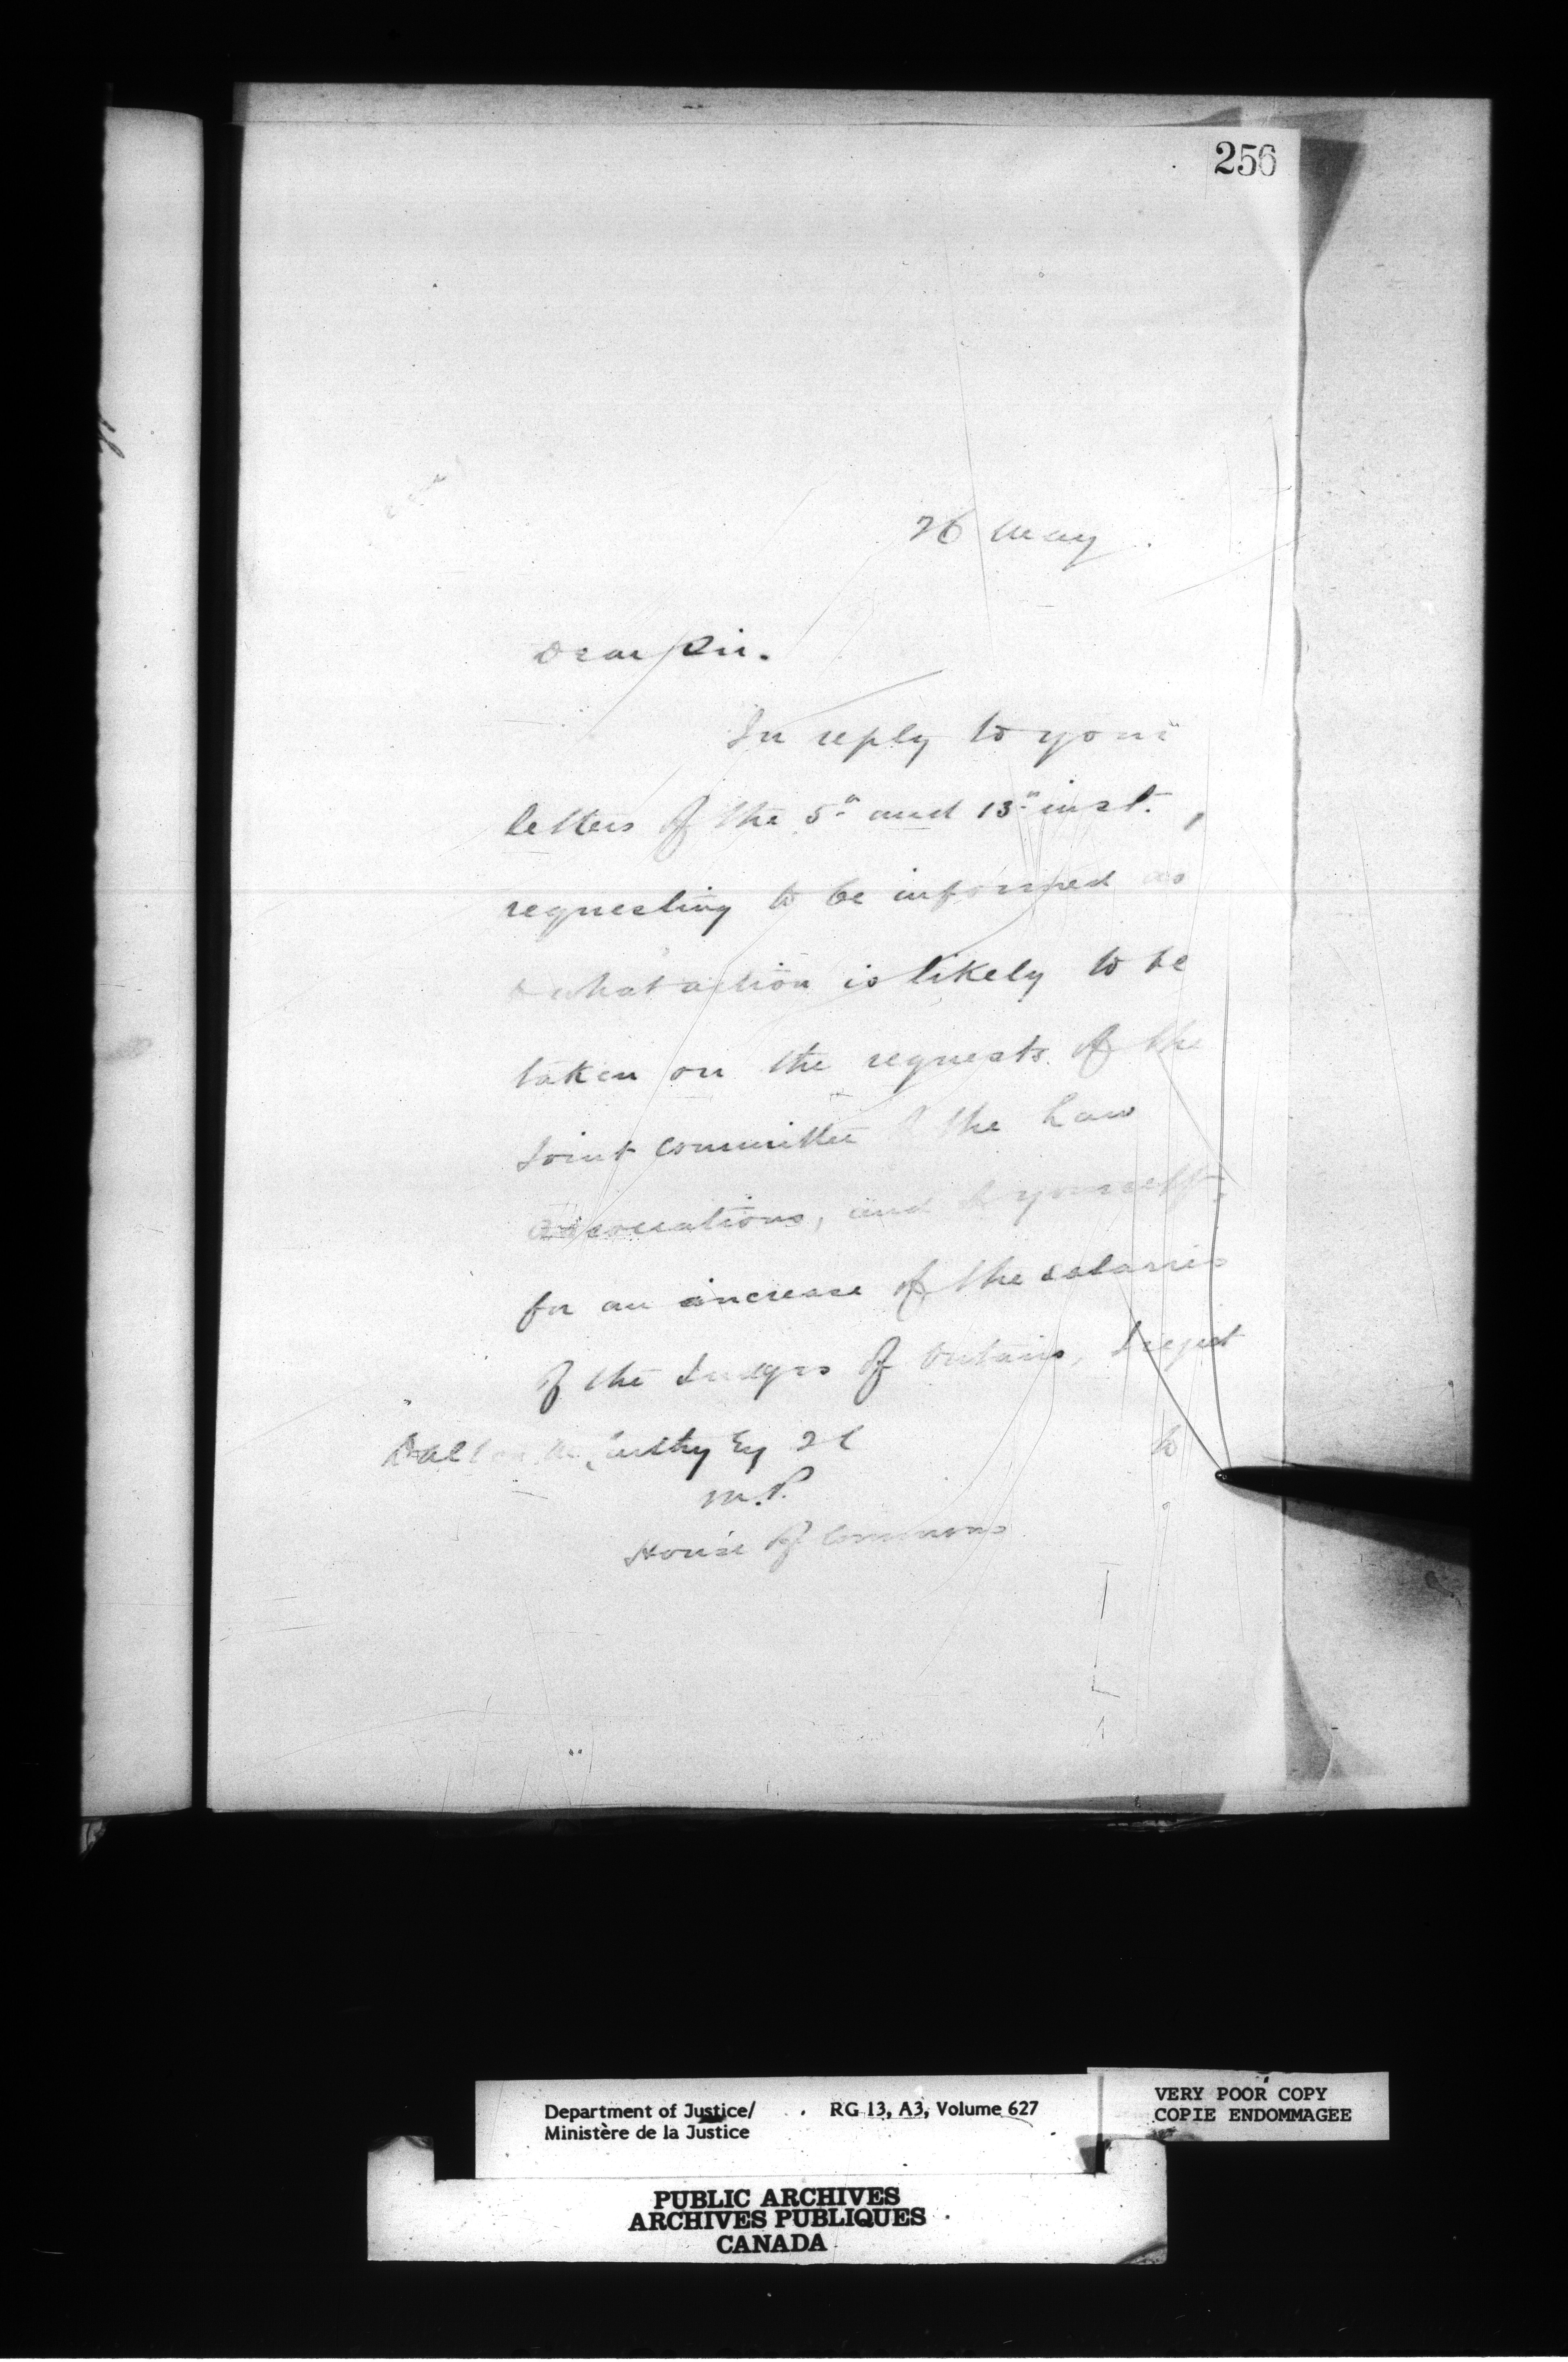 256
26 May
Dear Sir.
In reply to your
letters of the 5th and 13th inst.,
requesting to be informed as
to what action is likely to be
taken on the requests of the
Joint Committee of the Law
Associations, and of yourself,
for an increase of the salaries
of the Judges of Ontario, I regret
Dalton McCarthy Esq QC
to
M.P.
House of Commons
Department of Justice/
Ministère de la Justice
RG 13, A3, Volume 627
VERY POOR COPY
COPIE ENDOMMAGEE
PUBLIC ARCHIVES
ARCHIVES PUBLIQUES
CANADA